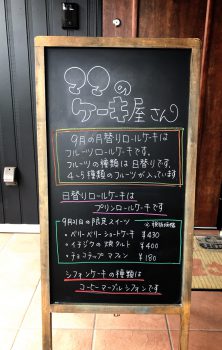 ママの
ケーキ屋さん
9月の月替りロールケーキは
フルーツロールケーキです。
フルーツの種類は日替りです。
4〜5種類のフルーツが入っています
日替りロールケーキは
プリンロールケーキです
9月21日の限定スイーツ
・ベリーベリーショートケーキ ¥430
・イチジクの焼タルト ¥400
・チョコチップマフィン ¥180
シフォンケーキの種類は
コーヒーマーブルシフォンです